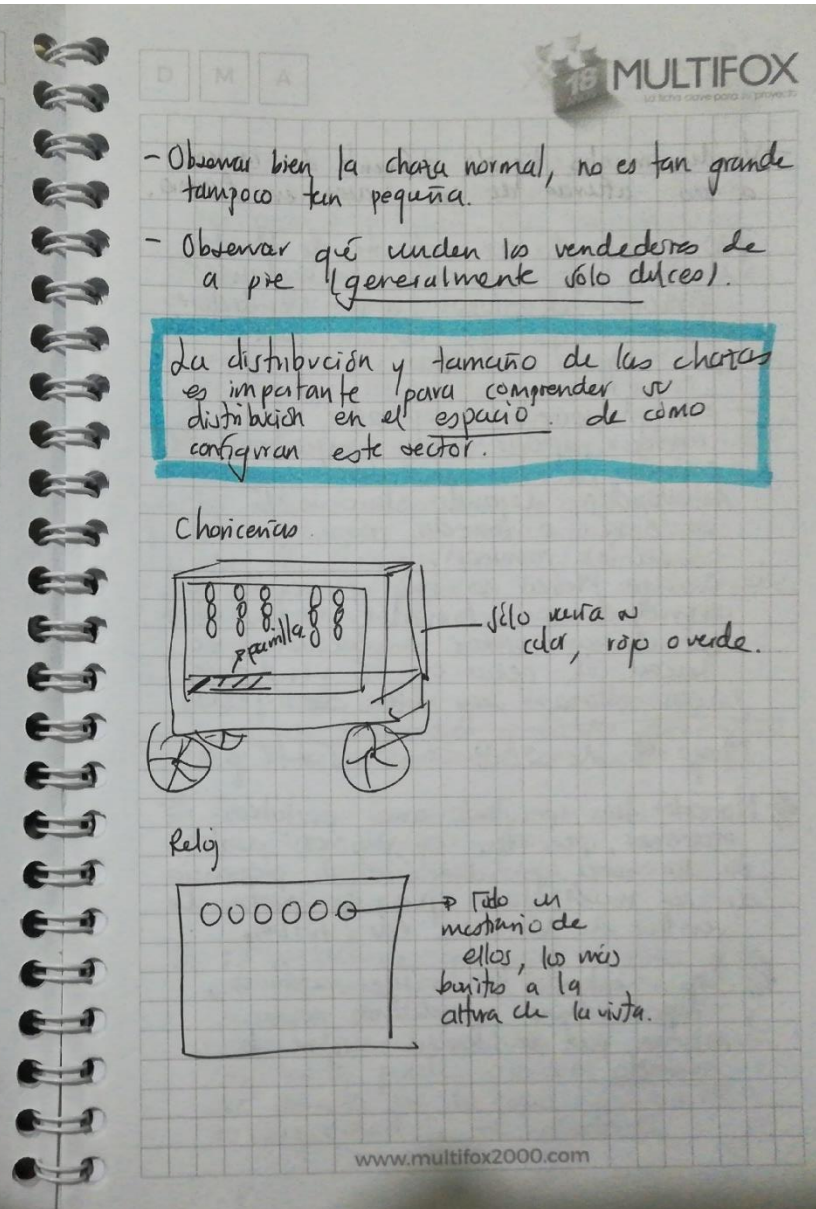 D M A
18
MULTIFOX
La ficha clave para su proyecto
- Observar bien la chaza normal, no es tan grande
tampoco tan pequeña.
- Observar qué venden los vendedores de
a pie (generalmente sólo dulces).
La distribución y tamaño de las chazas
es importante para comprender su
distribución en el espacio. de cómo
configuran este sector.
Choricerias.
parrilla
sólo varía su
color, rojo o verde.
Reloj
Todo un
mostrario de
ellos, los más
bonitos a la
altura de la vista.
www.multifox2000.com